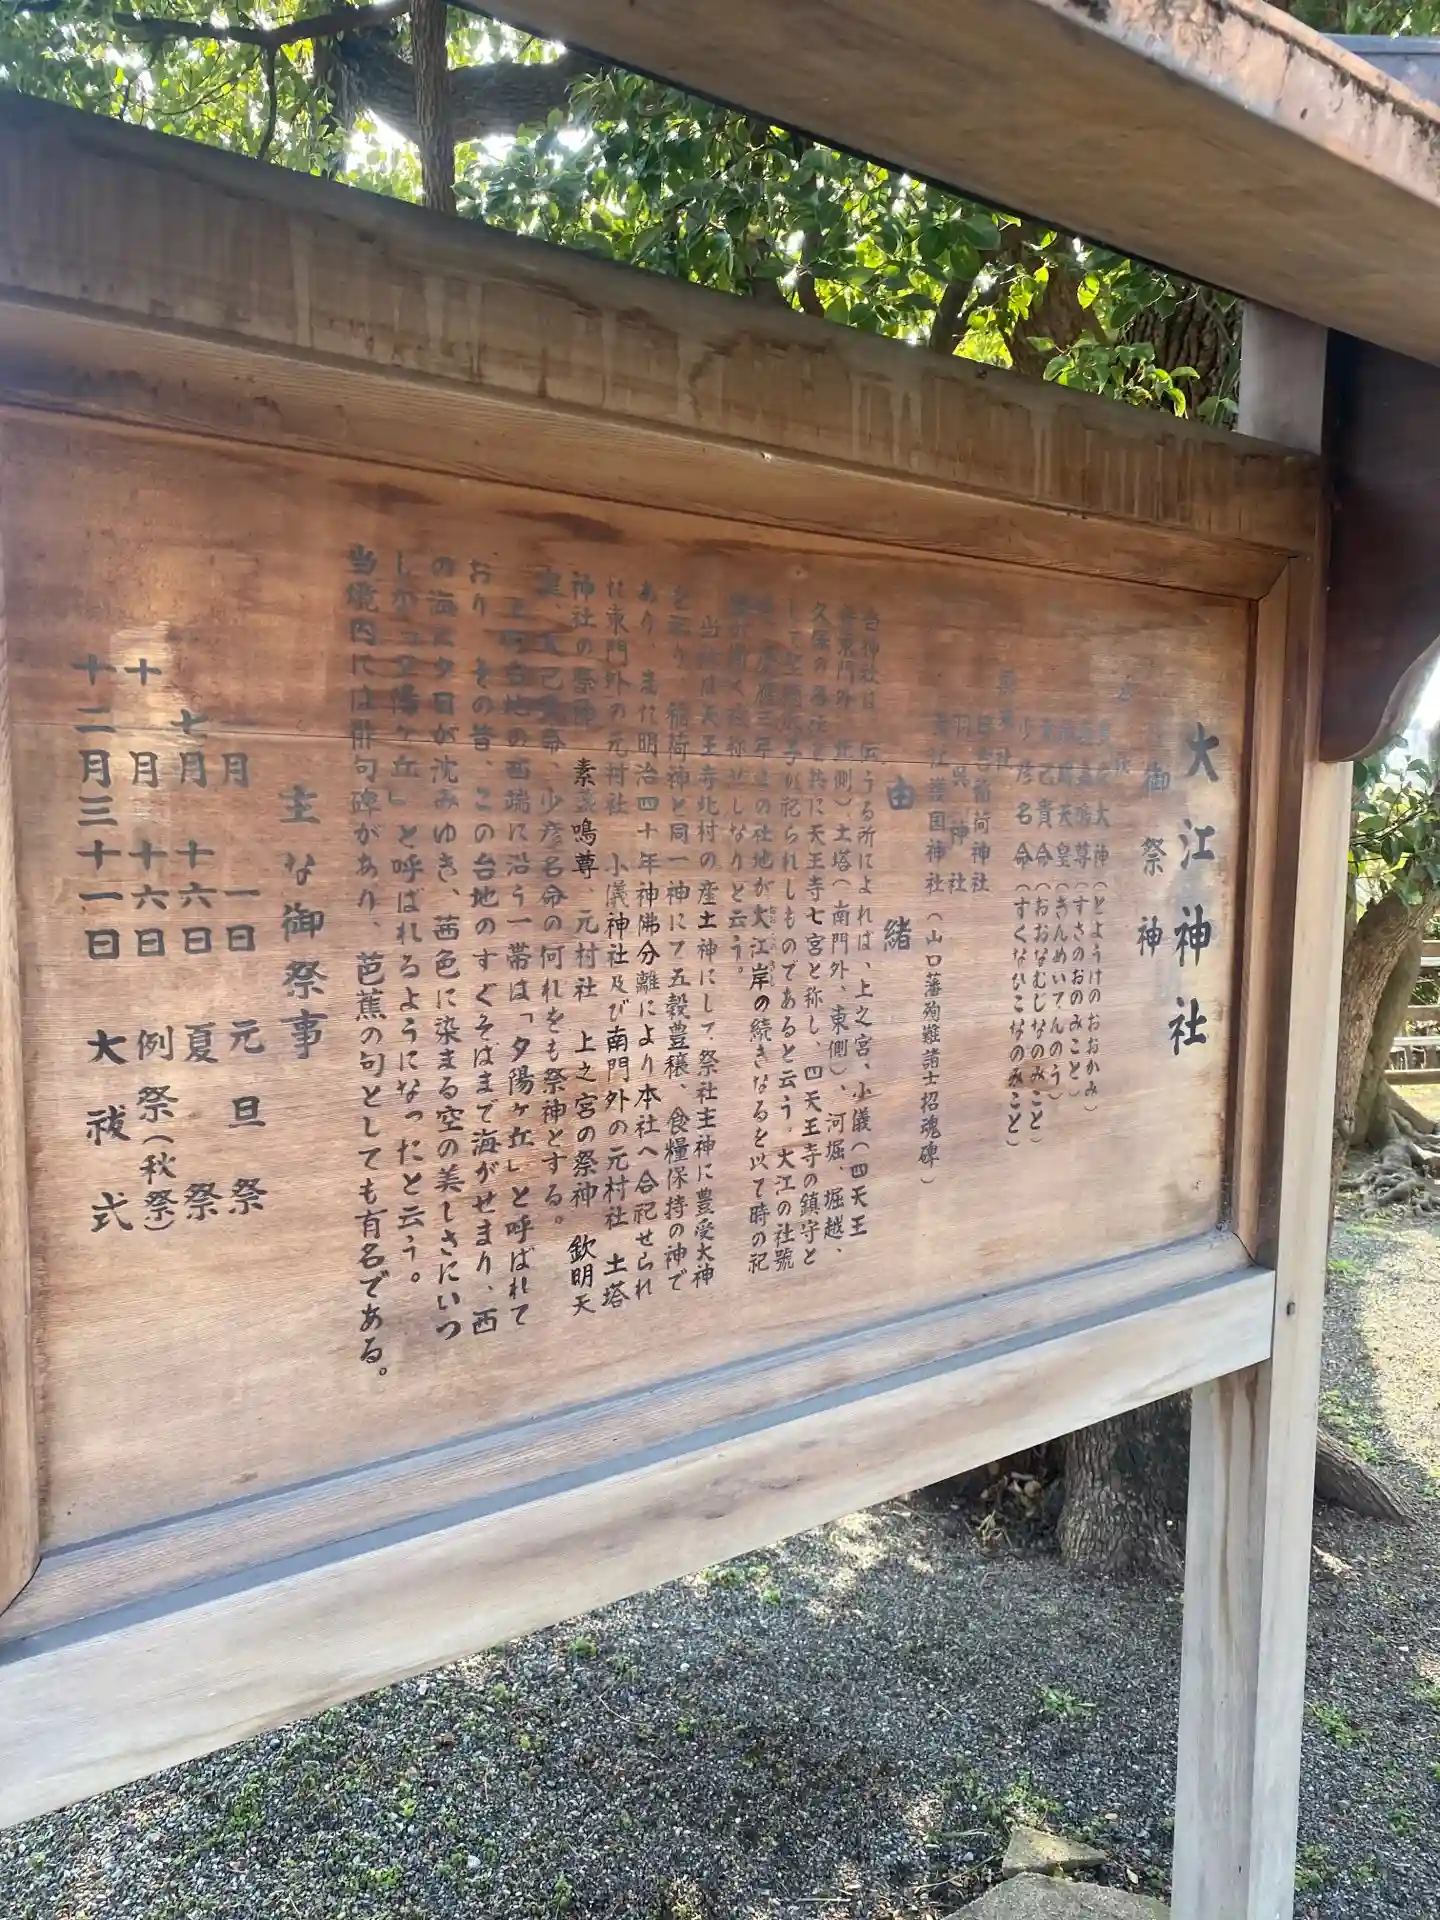 大江神社
御祭神
豊受大神(とようけのおおかみ)
素盞嗚尊(すさのおのみこと)
欽明天皇(きんめいてんのう)
大己貴命(おおなむじなのみこと)
少彦名命(すくなひこなのみこと)
稲荷神社
神社
護国神社(山口藩殉難諸士招魂碑)
由緒
当神社は、伝うる所によれば、上之宮、小儀(四天王
寺東門外、北側)、土塔(南門外、東側)、河堀、堀越、
久保の各社と共に天王寺七宮と称し、四天王寺の鎮守と
して聖徳太子が祀られしものであると云う。大江の社號
の社地が大江岸の続きなるを以て時の祀
称せしなりと云う。
当社は天王寺北村の産土神にして、祭社主神に豊受大神
を祀り、稲荷神と同一神にて五穀豊穣、食糧保持の神で
あり、また明治四十年神佛分離により本社へ合祀せられ
た東門外の元村社 小儀神社及び南門外の元村社 土塔
神社の祭神 素盞鳴尊、元村社 上之宮の祭神 欽明天
皇、大己貴命、少彦名命の何れをも祭神とする。
上町台地の西端に沿う一帯は「夕陽ヶ丘」と呼ばれて
おり、その昔、この台地のすぐそばまで海がせまり、西
の海に夕日が沈みゆき、茜色に染まる空の美しさにいつ
しか「夕陽ヶ丘」と呼ばれるようになったと云う。
当境内には俳句碑があり、芭蕉の句としても有名である。
主な御祭事
一月 一日 元旦祭
七月 十六日 夏祭
十月 十六日 例祭(秋祭)
十二月三十一日 大祓式